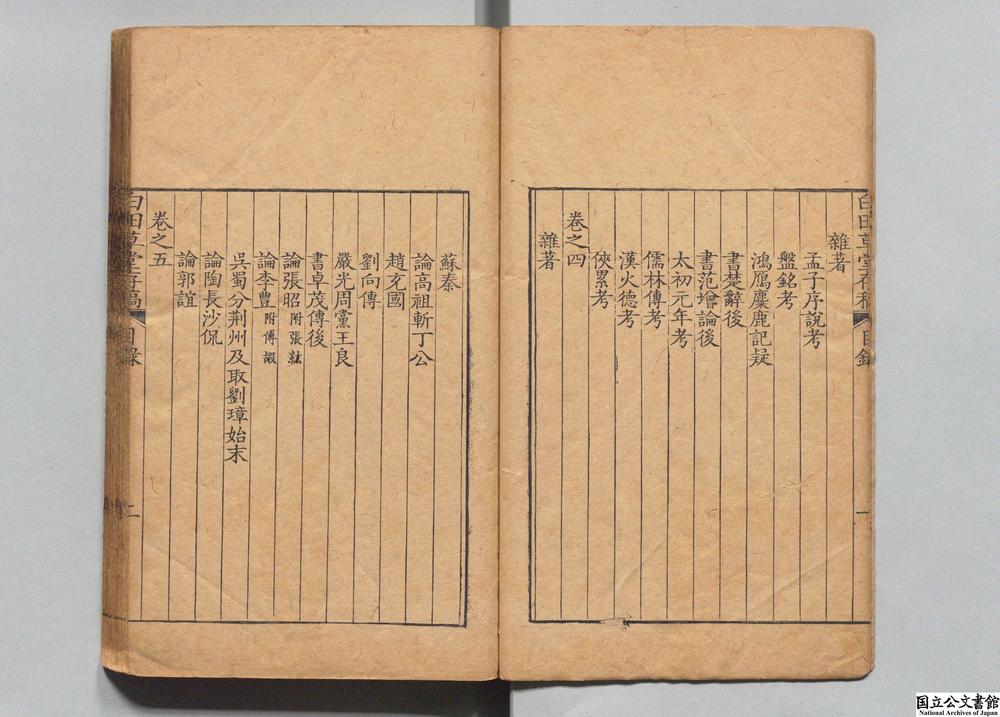 白田草堂存稿 目錄 一
雜著
孟子序說考
盤銘考
鴻鴈麋鹿記疑
書楚辭後
書范增論後
太初元年考
儒林傳考
漢火德考
俠累考
卷之四
雜著
蘇秦
論高祖斬丁公
趙充國
劉向傳
嚴光周黨王良
書卓茂傳後
論張昭附張紘
論李豐附傅嘏
吳蜀分荆州及取劉璋始末
論陶長沙侃
論郭誼
卷之五
白田草堂存稿 目錄 二
国立公文書館
National Archives of Japan